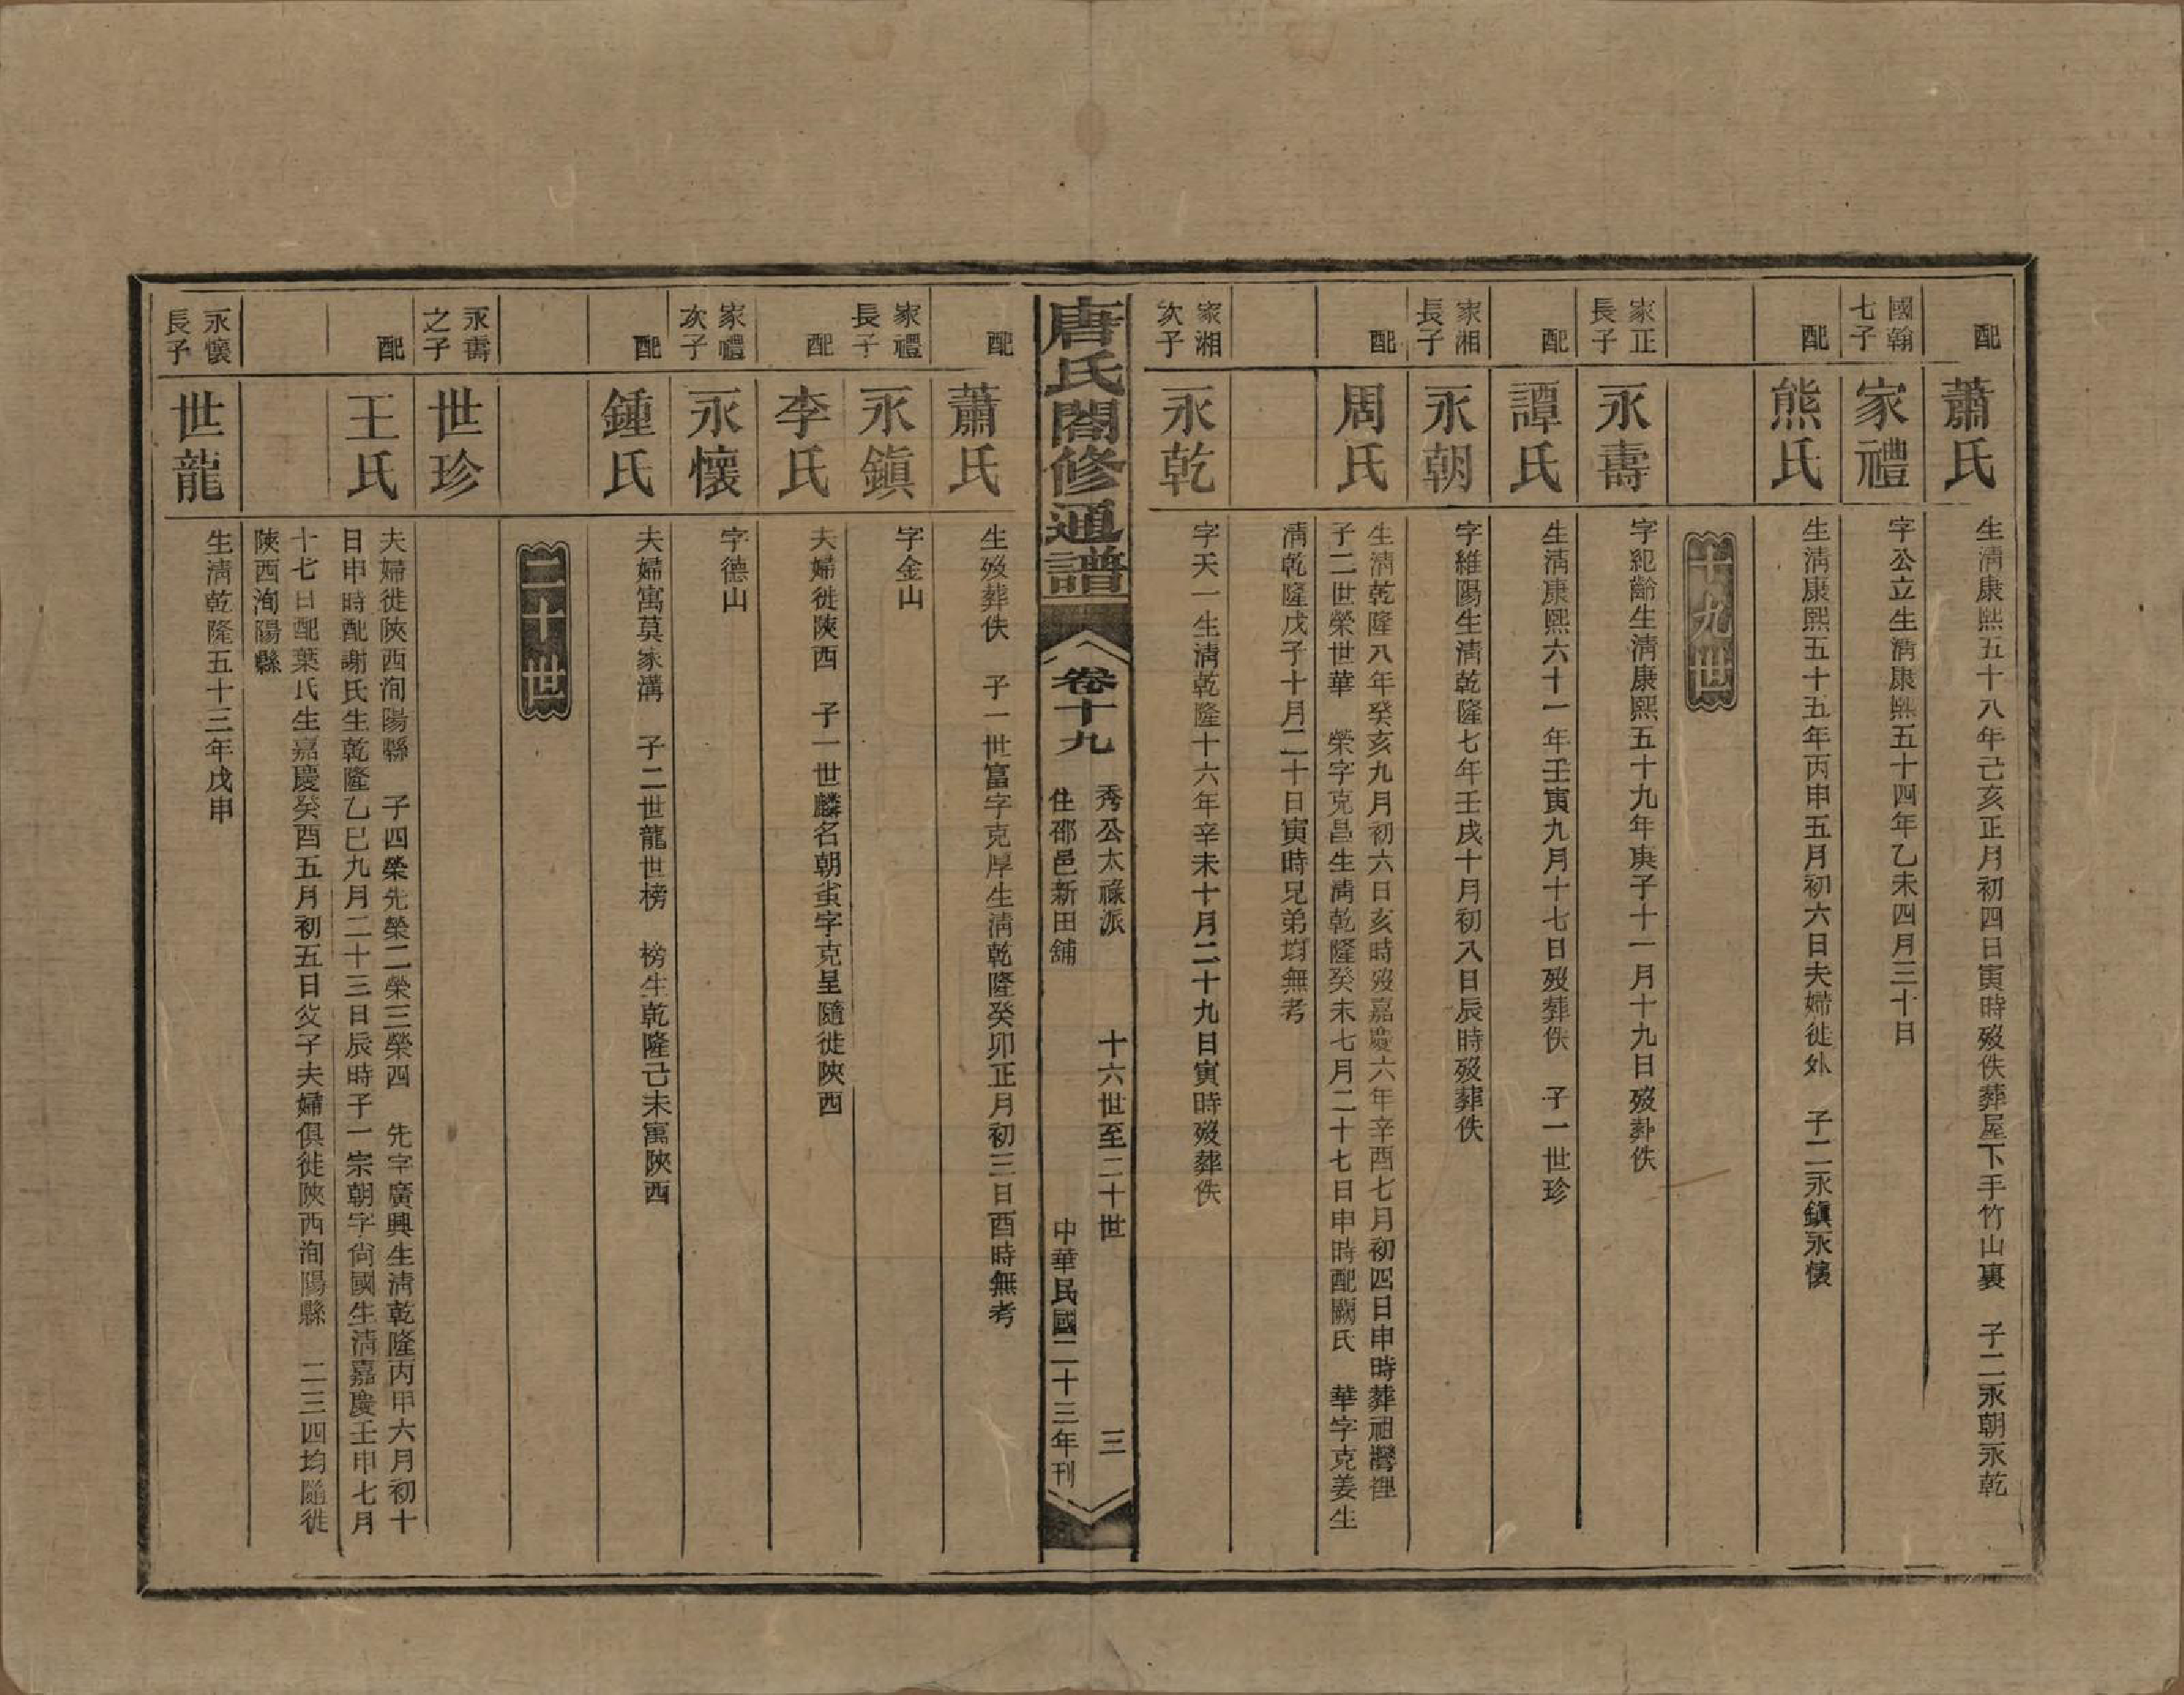 配
蕭氏
生清康熙五十八年己亥正月初四日寅時歿佚葬屋下手竹山裏　子二永朝永乾
國翰
七子
家禮
字公立生清康熙五十四年乙未四月三十日
配
熊氏
生清康熙五十五年丙申五月初六日夫婦徙外　子二永鎭永懷
十九世
家正
長子
永壽
字紀齡生清康熙五十九年庚子十一月十九日歿葬佚
配
譚氏
生清康熙六十一年壬寅九月十七日歿葬佚　子一世珍
家湘
長子
永朝
字維陽生清乾隆七年壬戌十月初八日辰時歿葬佚
配
周氏
生清乾隆八年癸亥九月初六日亥時歿嘉慶六年辛酉七月初四日申時葬祖灣裡
子二世榮世華　榮字克昌生清乾隆癸未七月二十七日申時配闕氏　華字克姜生
清乾隆戊子十月二十日寅時兄弟均無考
家湘
次子
永乾
字天一生清乾隆十六年辛未十月二十九日寅時歿葬佚
唐氏閤修通譜
卷十九
秀公太祿派
住邵邑新田舖
十六世至二十世
三
中華民國二十三年刊
配
蕭氏
生歿葬佚　子一世富字克厚生清乾隆癸卯正月初三日酉時無考
家禮
長子
永鎭
字金山
配
李氏
夫婦徙陝西　子一世麟名朝蚩字克呈隨徙陝西
家禮
次子
永懷
字德山
配
鍾氏
夫婦寓莫家溝　子二世龍世榜　榜生乾隆己未寓陝西
二十世
永壽
之子
世珍
配
王氏
夫婦徙陝西洵陽縣　子四榮先榮二榮三榮四　先字廣興生清乾隆丙甲六月初十
日申時配謝氏生乾隆乙巳九月二十三日辰時子一宗朝字尙國生清嘉慶壬申七月
十七日配葉氏生嘉慶癸酉五月初五日父子夫婦俱徙陝西洵陽縣　二三四均隨徙
陝西洵陽縣
永懷
長子
世龍
生清乾隆五十三年戊申